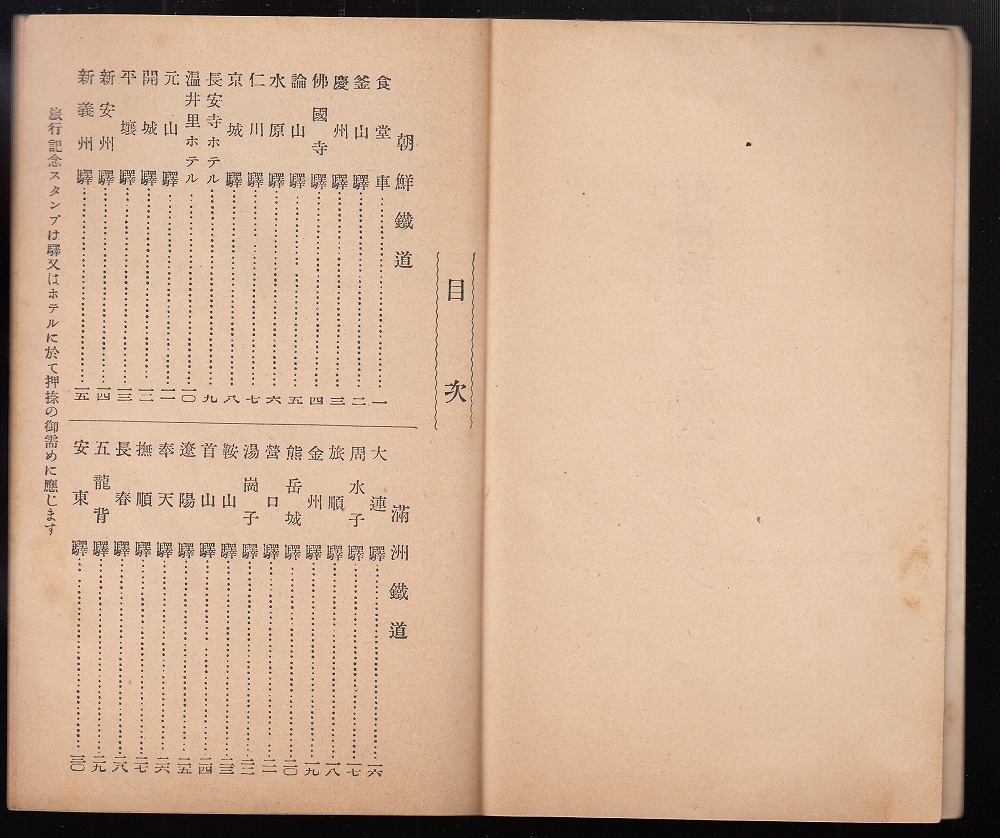 目次
朝鮮鐵道
食堂車 一
釜山驛 二
慶州驛 三
佛國寺驛 四
論山驛 五
水原驛 六
仁川驛 七
京城驛 八
長安寺ホテル 九
温井里ホテル 一〇
元山驛 一一
開城驛 一二
平壤驛 一三
新安州驛 一四
新義州驛 一五
滿洲鐵道
大連驛 一六
周水子驛 一七
旅順驛 一八
金州驛 一九
熊岳城驛 二〇
營口驛 二一
湯崗子驛 二二
鞍山驛 二三
首山驛 二四
遼陽驛 二五
奉天驛 二六
撫順驛 二七
長春驛 二八
五龍背驛 二九
安東驛 三〇
旅行記念スタンプは驛又はホテルに於て押捺の御需めに應じます